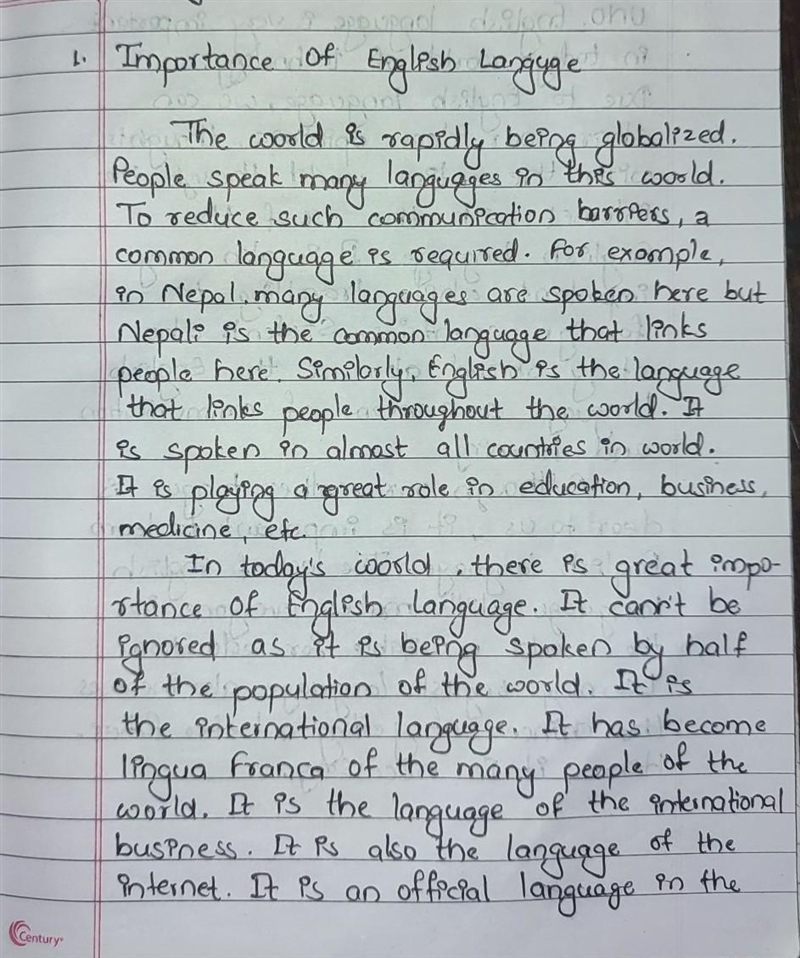 1. Importance of English Languge
The world is rapidly being globalized.
People speak many languages in this world.
To reduce such communication barriers, a
common language is required. For example,
in Nepal, many languages are spoken here but
Nepali is the common language that links
people here. Similarly, English is the language
that links people throughout the world. It
is spoken in almost all countries in world.
It is playing a great role in education, business,
medicine, etc.
In today's world, there is great impo-
rtance of English language. It cann't be
ignored as it is being spoken by half
of the population of the world. It is
the international language. It has become
lingua franca of the many people of the
world. It is the language of the international
business. It is also the language of the
internet. It is an official language in the
Century